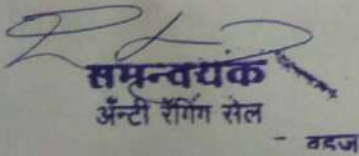 समन्वयक
अ‍ॅन्टी रॅगिंग सेल
- वडज